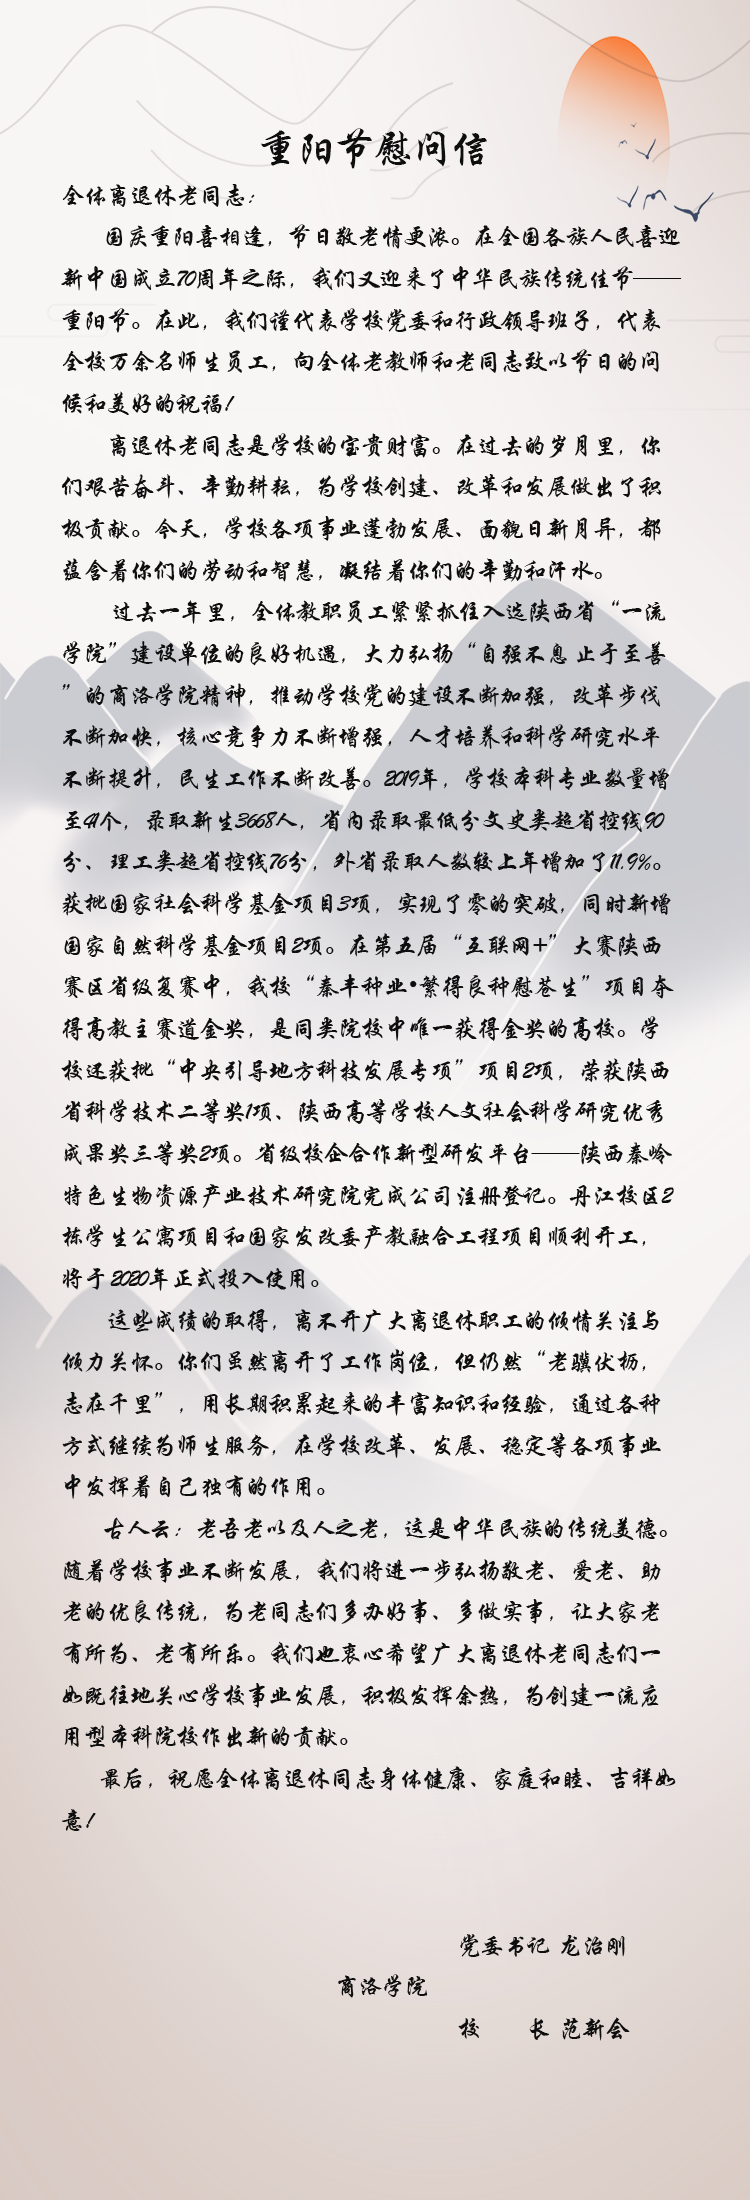 重阳节慰问信
全体离退休老同志：
国庆重阳喜相逢，节日敬老情更浓。在全国各族人民喜迎
新中国成立70周年之际，我们又迎来了中华民族传统佳节——
重阳节。在此，我们谨代表学校党委和行政领导班子，代表
全校万余名师生员工，向全体老教师和老同志致以节日的问
候和美好的祝福！
离退休老同志是学校的宝贵财富。在过去的岁月里，你
们艰苦奋斗、辛勤耕耘，为学校创建、改革和发展做出了积
极贡献。今天，学校各项事业蓬勃发展、面貌日新月异，都
蕴含着你们的劳动和智慧，凝结着你们的辛勤和汗水。
过去一年里，全体教职员工紧紧抓住入选陕西省“一流
学院”建设单位的良好机遇，大力弘扬“自强不息 止于至善
”的商洛学院精神，推动学校党的建设不断加强，改革步伐
不断加快，核心竞争力不断增强，人才培养和科学研究水平
不断提升，民生工作不断改善。2019年，学校本科专业数量增
至41个，录取新生3668人，省内录取最低分文史类超省控线90
分、理工类超省控线76分，外省录取人数较上年增加了11.9%。
获批国家社会科学基金项目3项，实现了零的突破，同时新增
国家自然科学基金项目2项。在第五届“互联网+”大赛陕西
赛区省级复赛中，我校“秦丰种业•繁得良种慰苍生”项目夺
得高教主赛道金奖，是同类院校中唯一获得金奖的高校。学
校还获批“中央引导地方科技发展专项”项目2项，荣获陕西
省科学技术二等奖1项、陕西高等学校人文社会科学研究优秀
成果奖三等奖2项。省级校企合作新型研发平台——陕西秦岭
特色生物资源产业技术研究院完成公司注册登记。丹江校区2
栋学生公寓项目和国家发改委产教融合工程项目顺利开工，
将于2020年正式投入使用。
这些成绩的取得，离不开广大离退休职工的倾情关注与
倾力关怀。你们虽然离开了工作岗位，但仍然“老骥伏枥，
志在千里”，用长期积累起来的丰富知识和经验，通过各种
方式继续为师生服务，在学校改革、发展、稳定等各项事业
中发挥着自己独有的作用。
古人云：老吾老以及人之老，这是中华民族的传统美德。
随着学校事业不断发展，我们将进一步弘扬敬老、爱老、助
老的优良传统，为老同志们多办好事、多做实事，让大家老
有所为、老有所乐。我们也衷心希望广大离退休老同志们一
如既往地关心学校事业发展，积极发挥余热，为创建一流应
用型本科院校作出新的贡献。
最后，祝愿全体离退休同志身体健康、家庭和睦、吉祥如
意！
党委书记 龙治刚
商洛学院
校 长 范新会